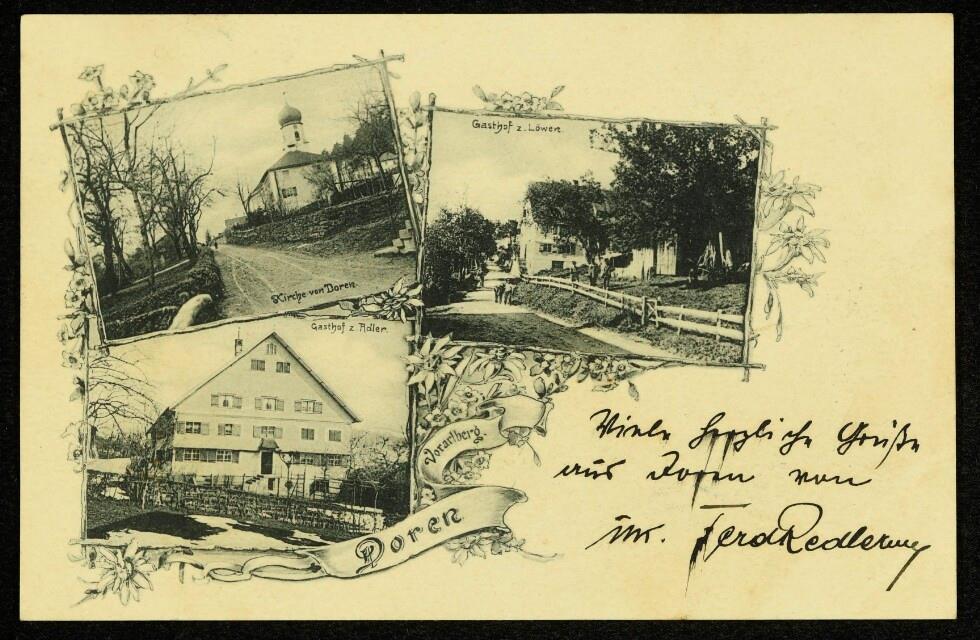 Kirche von Doren.
Gasthof z. Löwen.
Gasthof z. Adler.
Vorarlberg.
Doren
Viele herzliche Grüße
aus Doren von
Ferd Redler